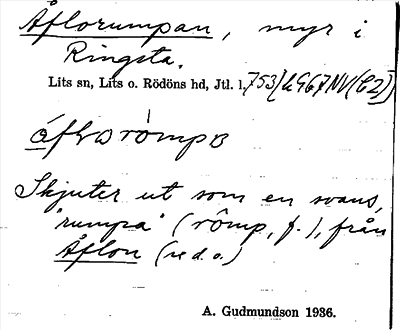 Åflorumpan, myr i
Ringsta.
Lits sn, Lits o. Rödöns hd, Jtl. l.
Skjuter ut som en svans,
"rumpa" (rômp, f.), från
Åflon (se d. o.)
A. Gudmundson 1936.